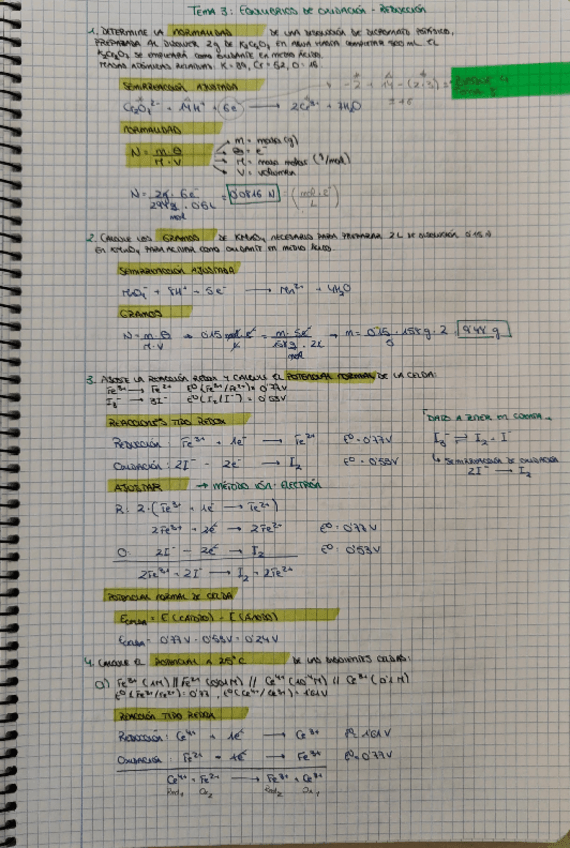 TEMA 3: EQUILIBRIOS DE OXIDACIÓN - REDUCCIÓN
1. DETERMINE LA NORMALIDAD DE UNA DISOLUCIÓN DE DICROMATO POTÁSICO,
PREPARADA AL DISOLVER 2g DE K2Cr2O7 EN AGUA HASTA COMPLETAR 500 mL. EL
K2Cr2O7 SE EMPLEARÁ COMO OXIDANTE EN MEDIO ÁCIDO.
MASAS ATÓMICAS RELATIVAS: K = 39, Cr = 52, O = 16
SEMIRREACCIÓN AJUSTADA
Cr2O7 2- + 14H+ + 6e- → 2Cr3+ + 7H2O
NORMALIDAD
N = m·θ / M·V
m = masa (g)
θ = e-
M = masa molar (g/mol)
V = volumen
N = 2g · 6e- / 294 g/mol · 0'5L = 0'0816 N (mol·e- / L)
2. CALCULE LOS GRAMOS DE KMnO4 NECESARIO PARA PREPARAR 2L DE DISOLUCIÓN 0'15N
EN KMnO4 PARA ACTUAR COMO OXIDANTE EN MEDIO ÁCIDO.
SEMIRREACCIÓN AJUSTADA
MnO4- + 8H+ + 5e- → Mn2+ + 4H2O
GRAMOS
N = m·θ / M·V → 0'15 mol·e- / L = m·5e- / 158 g/mol · 2L → m = 0'15 · 158g · 2 / 5 = 9'48 g
3. AJUSTE LA REACCIÓN REDOX Y CALCULE EL POTENCIAL NORMAL DE LA CELDA:
Fe3+ → Fe2+ Eº(Fe3+/Fe2+) = 0'77V
I3- → 3I- Eº(I2/I-) = 0'53V
REACCIONES TIPO REDOX
REDUCCIÓN: Fe3+ + 1e- → Fe2+ Eº = 0'77V
OXIDACIÓN: 2I- - 2e- → I2 Eº = 0'53V
DATO A TENER EN CUENTA
I3- ⇌ I2 + I-
SEMIRREACCIÓN DE OXIDACIÓN
2I- → I2
AJUSTAR → MÉTODO IÓN-ELECTRÓN
R: 2·(Fe3+ + 1e- → Fe2+)
2Fe3+ + 2e- → 2Fe2+ Eº = 0'77V
O: 2I- - 2e- → I2 Eº = 0'53V
2Fe3+ + 2I- → I2 + 2Fe2+
POTENCIAL NORMAL DE CELDA
Ecelda = E(CÁTODO) - E(ÁNODO)
Ecelda = 0'77V - 0'53V = 0'24V
4. CALCULE EL POTENCIAL A 25ºC DE LAS SIGUIENTES CELDAS:
a) Fe3+ (1M) // Fe2+ (0'01M) // Ce4+ (10-4M) // Ce3+ (0'1M)
Eº(Fe3+/Fe2+) = 0'77, Eº(Ce4+/Ce3+) = 1'61V
REACCIÓN TIPO REDOX
REDUCCIÓN: Ce4+ + 1e- → Ce3+ Eº = 1'61V
OXIDACIÓN: Fe2+ - 1e- → Fe3+ Eº = 0'77V
Ce4+ + Fe2+ → Fe3+ + Ce3+